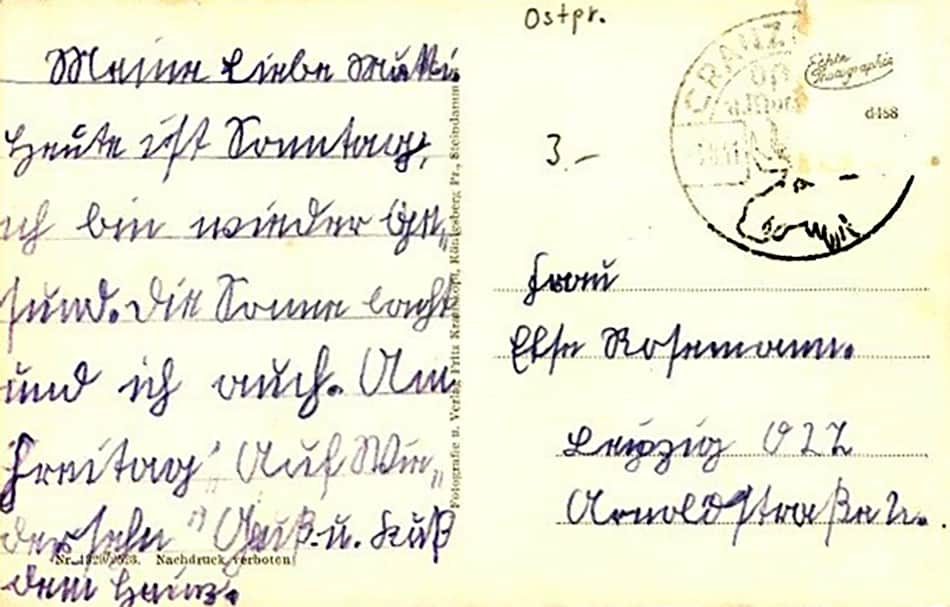 Meine Liebe Mutti
Heute ist Sonntag,
ich bin wieder Ge„
sund. Die Sonne lacht
und ich auch. Am
Freitag „Auf Wie„
dersehn" Gruß u. Kuß
dein Heinz.
Ostpr.
3.–
CRANZ
Echte
Photographie
d488
Frau
Else Rosemann.
Leipzig O 27
Arnoldstraße 2.
Fotografie u. Verlag Fritz Krauskopf, Königsberg Pr., Steindamm
Nachdruck verboten